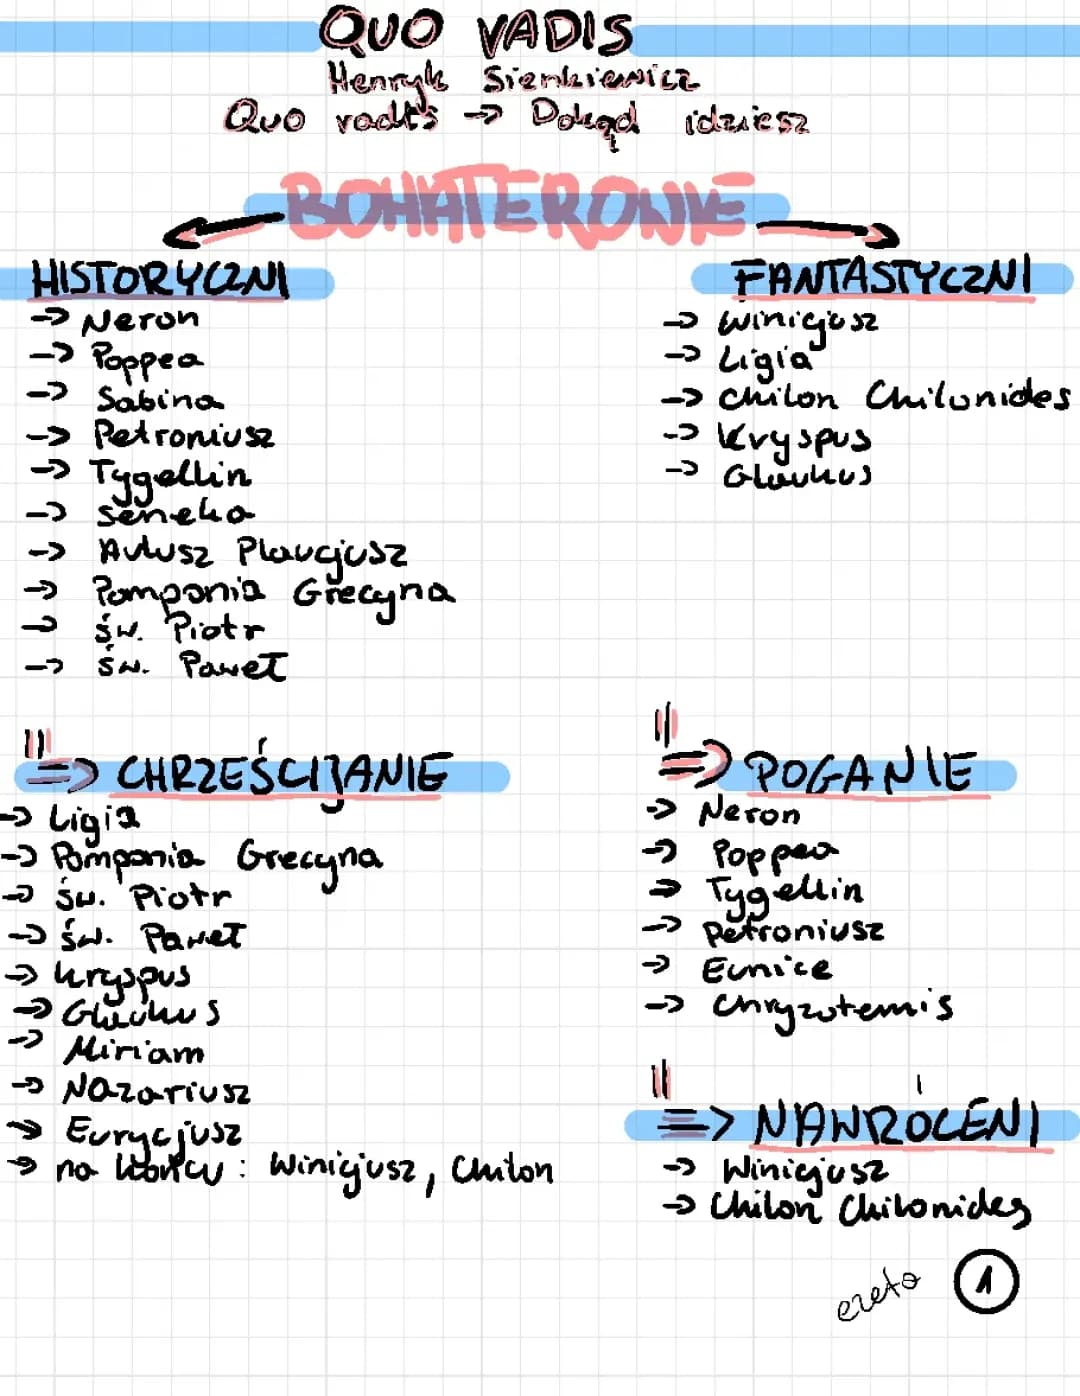 QUO VADIS
Henryk Sienkiewicz
Quo vadis → Dokąd idziesz
BOHATEROWIE
HISTORYCZNI
→ Neron
→ Poppea
→ Sabina
→ Petroniusz
→ Tygellin
→ Seneka
→ Aulusz Plaucjusz
→ Pomponia Grecyna
→ św. Piotr
→ św. Paweł
FANTASTYCZNI
→ Winicjusz
→ Ligia
→ Chilon Chilonides
→ Kryspus
→ Glaukus
!! => CHRZEŚCIJANIE
→ Ligia
→ Pomponia Grecyna
→ św. Piotr
→ św. Paweł
→ Kryspus
→ Glaukus
→ Miriam
→ Nazariusz
→ Eurycjusz
→ na końcu : Winicjusz, Chilon
!! => POGANIE
→ Neron
→ Poppea
→ Tygellin
→ Petroniusz
→ Eunice
→ Chryzotemis
!! => NAWRÓCENI
→ Winicjusz
→ Chilon Chilonides
ezeto
1